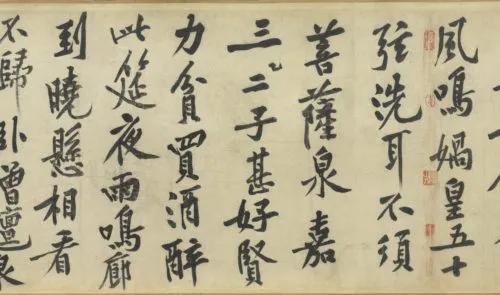 風鳴媧皇五十
弦洗耳不須
菩薩泉嘉
三二子甚好賢
力貧買酒醉
此筵夜雨鳴廊
到曉懸相看
不歸臥僧氊泉